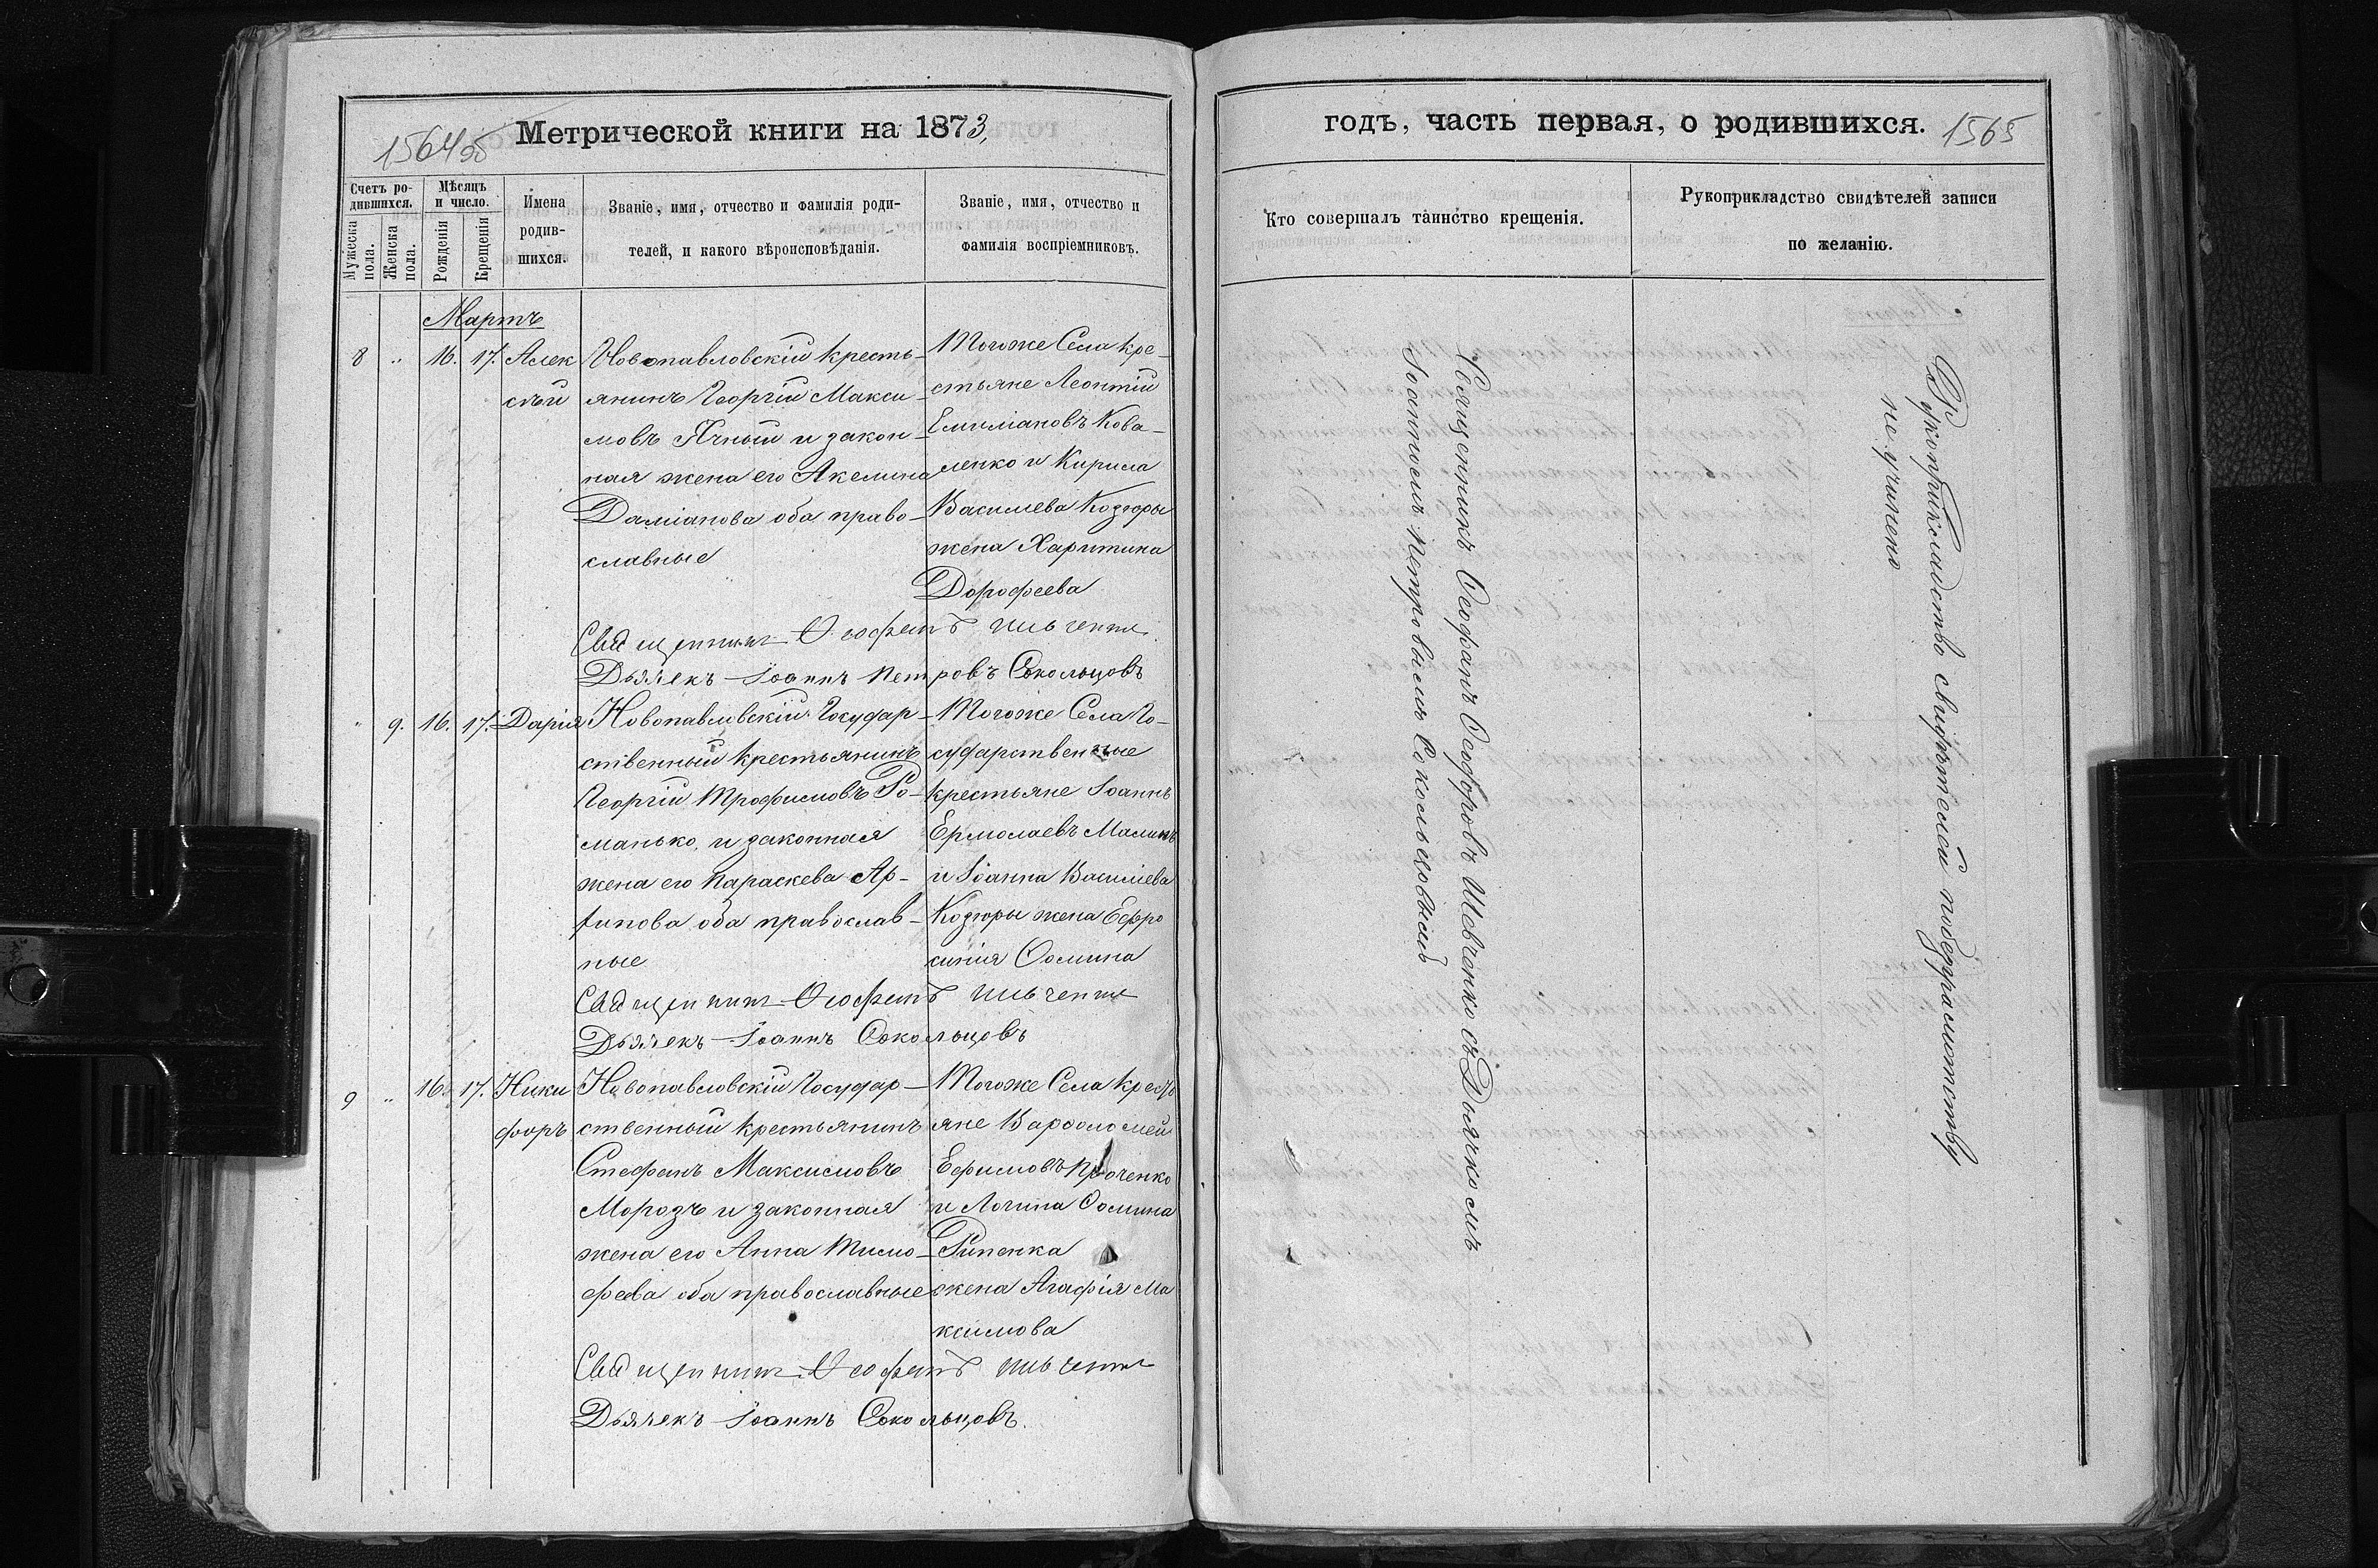 Метрической книги на 1873,
1564
Счетъ ро-
дившихся.
Мѣсяцъ
и число.
Мужеска
пола.
Женска
пола.
Рожденія
Крещенія
Имена
родив-
шихся.
Званіе, имя, отчество и фамилія роди-
телей, и какого вѣроисповѣданія.
Званіе, имя, отчество и
фамилія воспріемниковъ.
Мартъ
8 " 16. 17. Алек
сѣй
Новопавловскій кресть-
янинъ Георгій Макси-
мовъ Ячный и закон-
ная жена его Акелина
Даміанова оба право-
славные
Тогоже Села кре-
стьяне Леонтій
Емиліановъ Кова-
ленко и Кирила
Василева Козюры
жена Харитина
Дорофеева
Священникъ Ѳеофанъ Шевченко
Дьячекъ Іоаннъ Петровъ Сокольцовъ
" 9. 16. 17. Дарія
Новопавловскій Государ-
ственный крестьянинъ
Георгій Трофимовъ Ро-
манько, и законная
жена его Параскева Ар-
хипова оба православ-
ные
Тогоже Села Го-
сударственные
крестьяне Іоаннъ
Ермолаевъ Малинъ
и Іоанна Василіева
Козюры жена Ефро
синия Ѳомина
Священникъ Ѳеофанъ Шевченко
Дьячекъ Іоаннъ Сокольцовъ
9 " 16. 17. Ники
форъ
Новопавловскій Государ-
ственный крестьянинъ
Стефанъ Максимовъ
Морозъ и законная
жена его Анна Тимо-
феева оба православные
Тогоже Села Крестъ
яне Варфоломей
Ефимовъ
и Логина Ѳомина
Рипенка
жена Агафія Ма
ксимова
Священникъ Ѳеофанъ Шевченко
Дьячекъ Іоаннъ Сокольцовъ.
годъ, часть первая, о родившихся.
1565
Кто совершалъ таинство крещенія.
Рукоприкладство свидѣтелей записи
по желанію.
Священникъ Ѳеофанъ Ѳеодоровъ Шевченко съ Дьячкомъ
Іоанномъ Петровымъ Сокольцовымъ
Рукоприкладство Свидѣтелей по безграмотству
не учинено